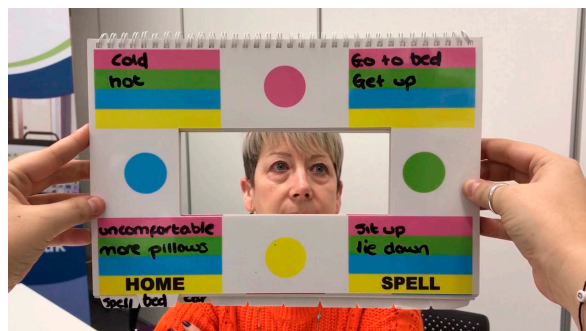 Cold
hot
Go to bed
Get up
uncomfortable
more pillows
HOME
Sit up
lie down
SPELL
Spell bed car